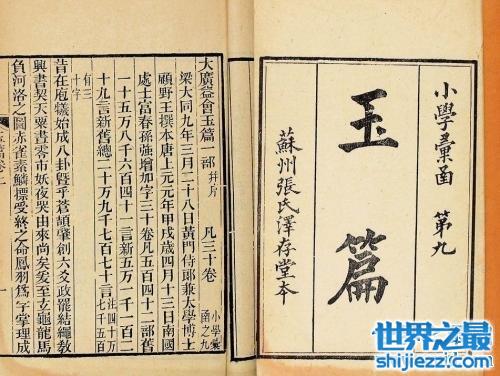 小學彙函 第九
玉篇
蘇州張氏澤存堂本
大廣益會玉篇一部并序 凡三十卷 小學彙函之九
梁大同九年三月二十八日黃門侍郎兼太學博士
顧野王撰本唐上元元年甲戌歲四月十三日南國
處士富春孫強增加字三十卷凡五百四十二部舊
一十五萬八千六百四十一言新五萬一千一百二
十九言新舊總二十萬九千七百七十言注四十萬七千五百
有三十字
昔在庖犧始成八卦暨乎蒼頡肇創六爻政罷結繩教
興書契天粟晝零市妖夜哭由來尚矣爰至玄龜龍馬
負河洛之圖赤雀素鱗標受終之命鳳羽為字掌理成
世界之最
shijiezzj.com